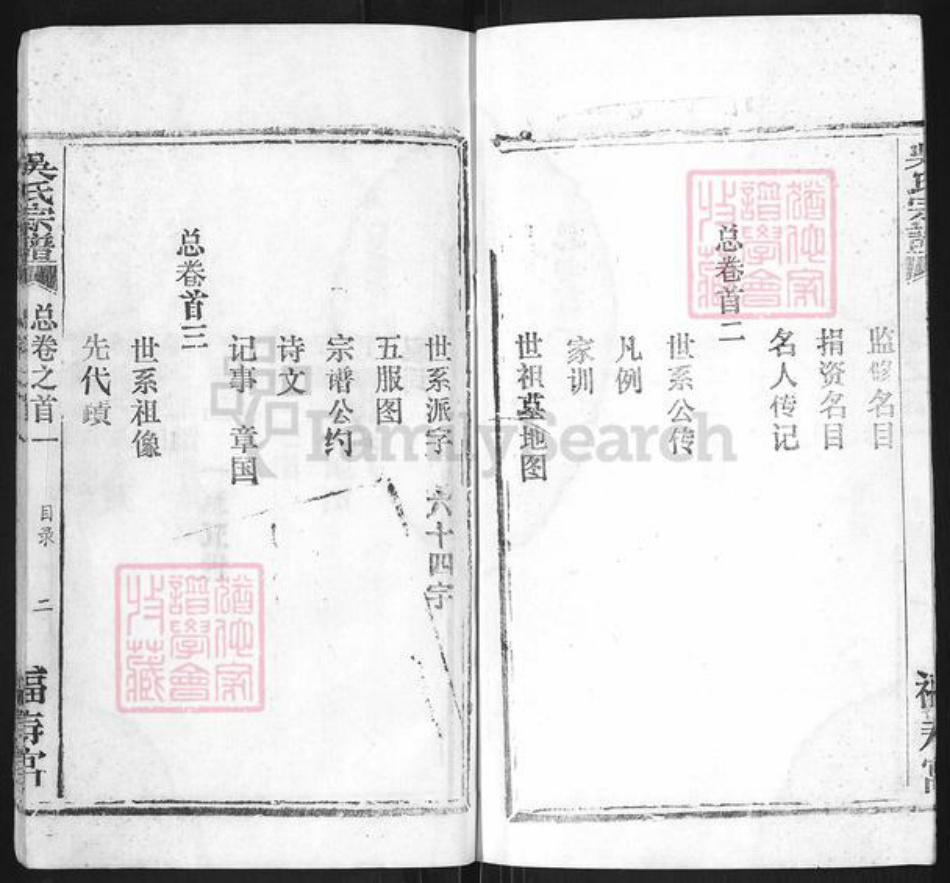 吳氏宗譜
監修名目
捐资名目
名人传记
总卷首二
世系公传
凡例
家训
世祖墓地图
世系派字 六十四字
五服图
宗谱公约
诗文
记事 章国
总卷首三
世系祖像
先代蹟
吳氏宗譜
总卷之首一
目录
二
福寿宫
FamilySearch
譜學會
收藏
譜學會
收藏